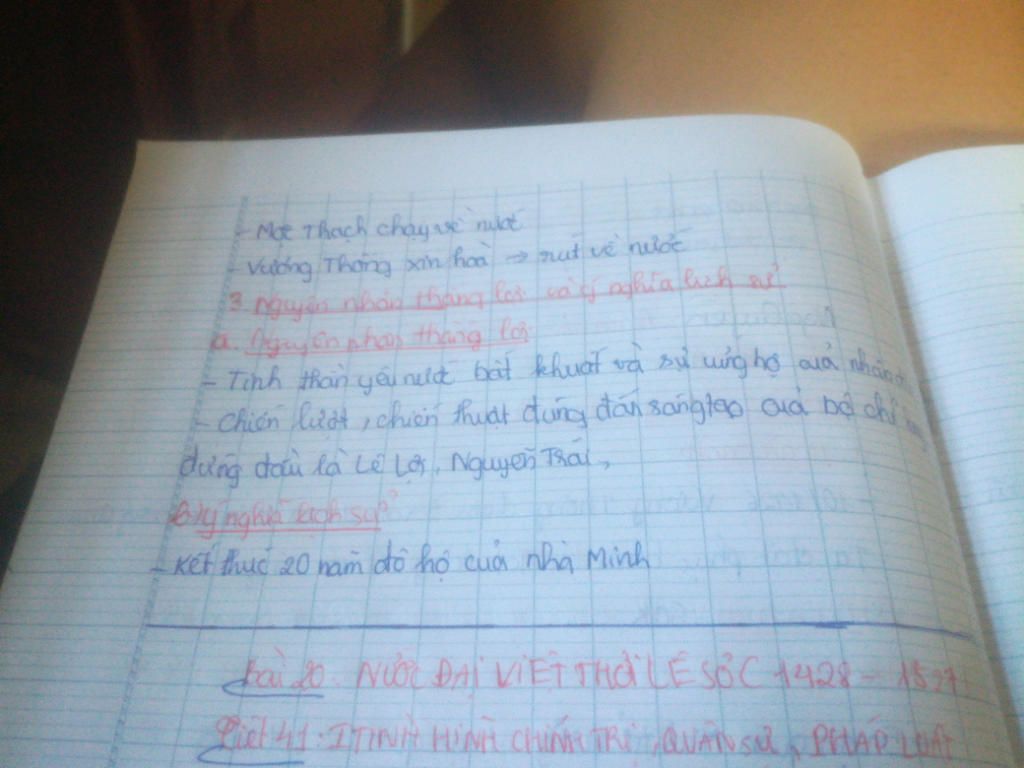 - Mọc Thạch chạy về nước
- Vương Thông xin hoà → rút về nước
3. Nguyên nhân thắng lợi và ý nghĩa lịch sử
a. Nguyên nhân thắng lợi
- Tinh thần yêu nước bất khuất và sự ủng hộ của nhân
- Chiến lượt, chiến thuật đúng đắn sáng tạo của bộ chỉ
đứng đầu là Lê Lợi, Nguyễn Trãi,
b) ý nghĩa lịch sử?
- Kết thúc 20 năm đô hộ của nhà Minh
Bài 20. NƯỚC ĐẠI VIỆT THỜI LÊ SƠ ( 1428 - 1527
Tiết 41: I TÌNH HÌNH CHÍNH TRỊ, QUÂN SỰ, PHÁP LUẬT